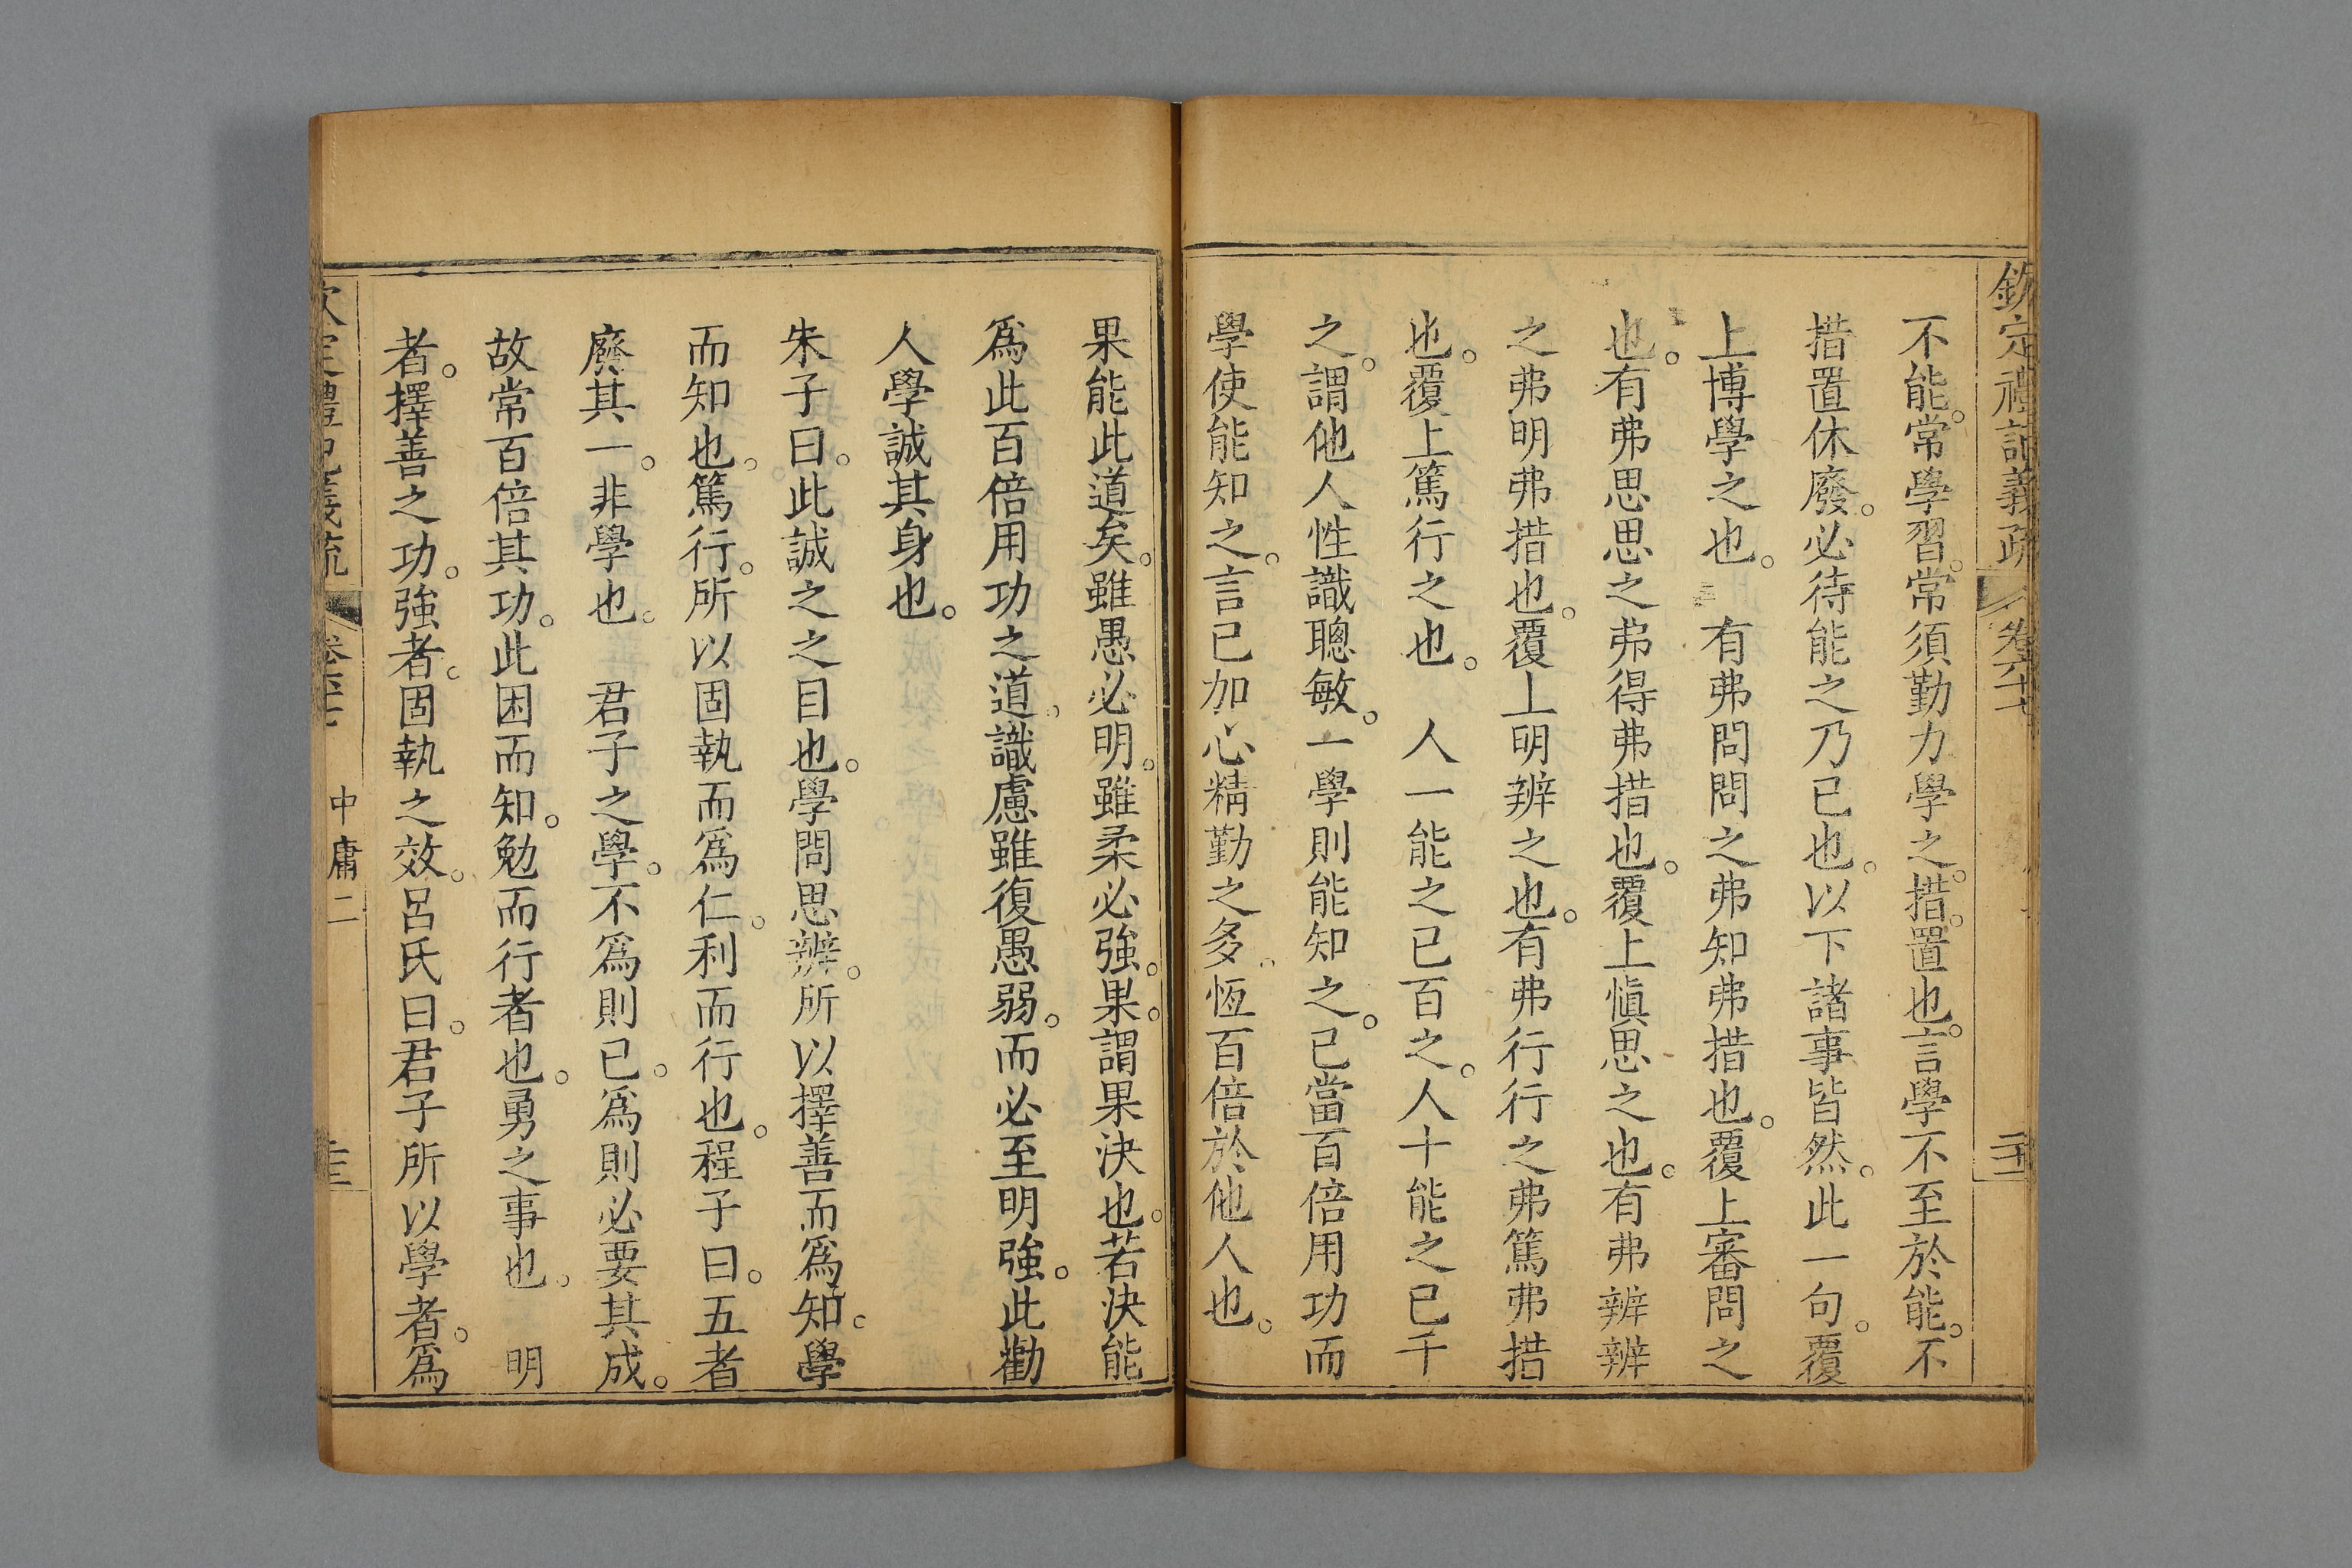 欽定禮記義疏 卷六十七
不能。常學習。常須勤力學之。措。置也。言學不至於能。不
措置休廢。必待能之乃已也。以下諸事皆然。此一句。覆
上博學之也。 有弗問問之弗知弗措也。覆上審問之
也。有弗思思之弗得弗措也。覆上愼思之也。有弗辨辨
之弗明弗措也。覆上明辨之也。有弗行行之弗篤弗措
也。覆上篤行之也。 人一能之已百之。人十能之已千
之。謂他人性識聰敏。一學則能知之。已當百倍用功而
學使能知之。言已加心精勤之多。恆百倍於他人也。
果能此道矣。雖愚必明。雖柔必強。果。謂果決也。若決能
爲此百倍用功之道。識慮雖復愚弱。而必至明強。此勸
人學誠其身也。
朱子曰。此誠之之目也。學問思辨。所以擇善而爲知。學
而知也。篤行。所以固執而爲仁。利而行也。程子曰。五者
廢其一。非學也。 君子之學。不爲則已。爲則必要其成。
故常百倍其功。此困而知。勉而行者也。勇之事也。 明
者。擇善之功。強者。固執之效。呂氏曰。君子所以學者。爲
定禮記義疏 中庸二